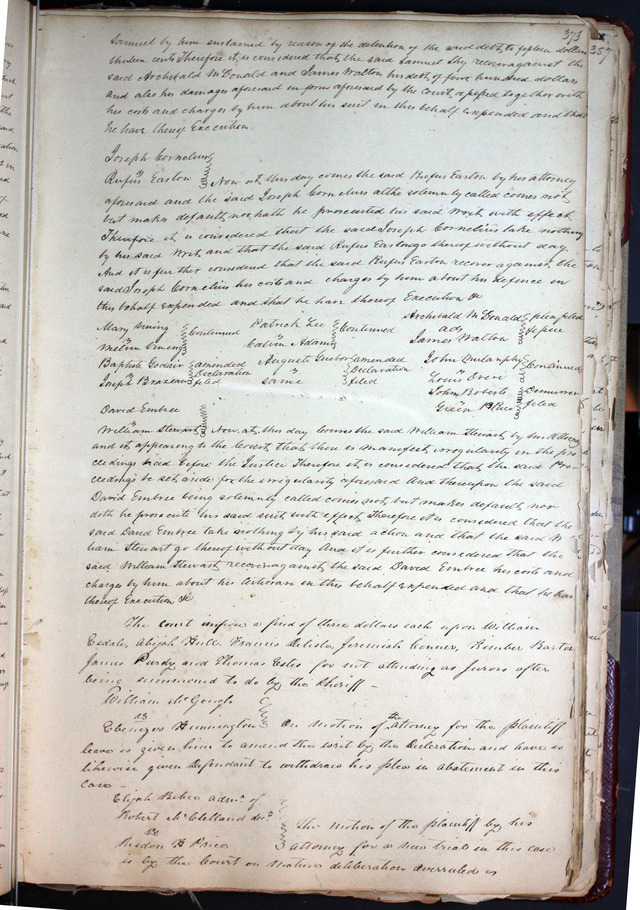 373
357
Samuel by him sustained by reason of the detention of the said debt to fifteen dollars
thirteen cents Therefore it is considered that the said Samuel Shy recover against the
said Archibald McDonald and James Walton his debt of four hundred dollars
and also his damages aforesaid in form aforesaid by the Court assessed together with
his costs and charges by him about his suit in this behalf expended and that
he have thereof Execution.
Joseph Cornelius
vs
Rufus Easton Now at this day comes the said Rufus Easton by his attorney
aforesaid and the said Joseph Cornelius altho solemnly called comes not
but makes default, nor hath he prosecuted his said Writ with effect
Therefore it is considered that the said Joseph Cornelius take nothing
by his said Writ and that the said Rufus Easton go thereof without day.
And it is further considered that the said Rufus Easton recover against the
said Joseph Cornelius his costs and charges by him about his defence in
this behalf expended and that he have thereof Execution &c
Mary Sminy vs Continued
Patrick Lee vs Calvin Adams Continued
Archibald McDonald ads James Walton plea filed
Baptiste Godair vs Joseph Brazeau amended Declaration filed
Auguste vs same amended Declaration filed
John Mulanphy vs Louis Continued
John Roberts vs Price Demurrer filed
David Embree
vs
William Stewart Now at this day comes the said William Stewart by his Attorney
and it appearing to the Court that there is manifest irregularity in the pro
ceedings had before the Justice Therefore it is considered that the said Pro
ceedings be set aside for the irregularity aforesaid And thereupon the said
David Embree being solemnly called comes not but makes default, nor
doth he prosecute his said suit with effect, Therefore it is considered that the
said David Embree take nothing by his said action and that the said Wil
liam Stewart go thereof without day And it is further considered that the
said William Stewart recover against the said David Embree his costs and
charges by him about his Certiorari in this behalf expended and that he have
thereof Execution &c
The court impose a fine of three dollars each upon William
Esdale, Abijah Hull, Francis Delisle, Jeremiah Conner, Kember Barton
James Purdy and Thomas Estes for not attending as Jurors after
being summoned to do by the Sheriff -
William McGough
vs
Ebenezer Hinnington On Motion of the attorney for the plaintiff
leave is given him to amend the writ by the declaration and leave is
likewise given Defendant to withdraw his plea in abatement in this
Case -
Elijah admr. of
Robert McClelland decd.
vs
Risdon H Price The Motion of the plaintiff by his
attorney for a new trial in this case
is by the Court on mature deliberation overruled &